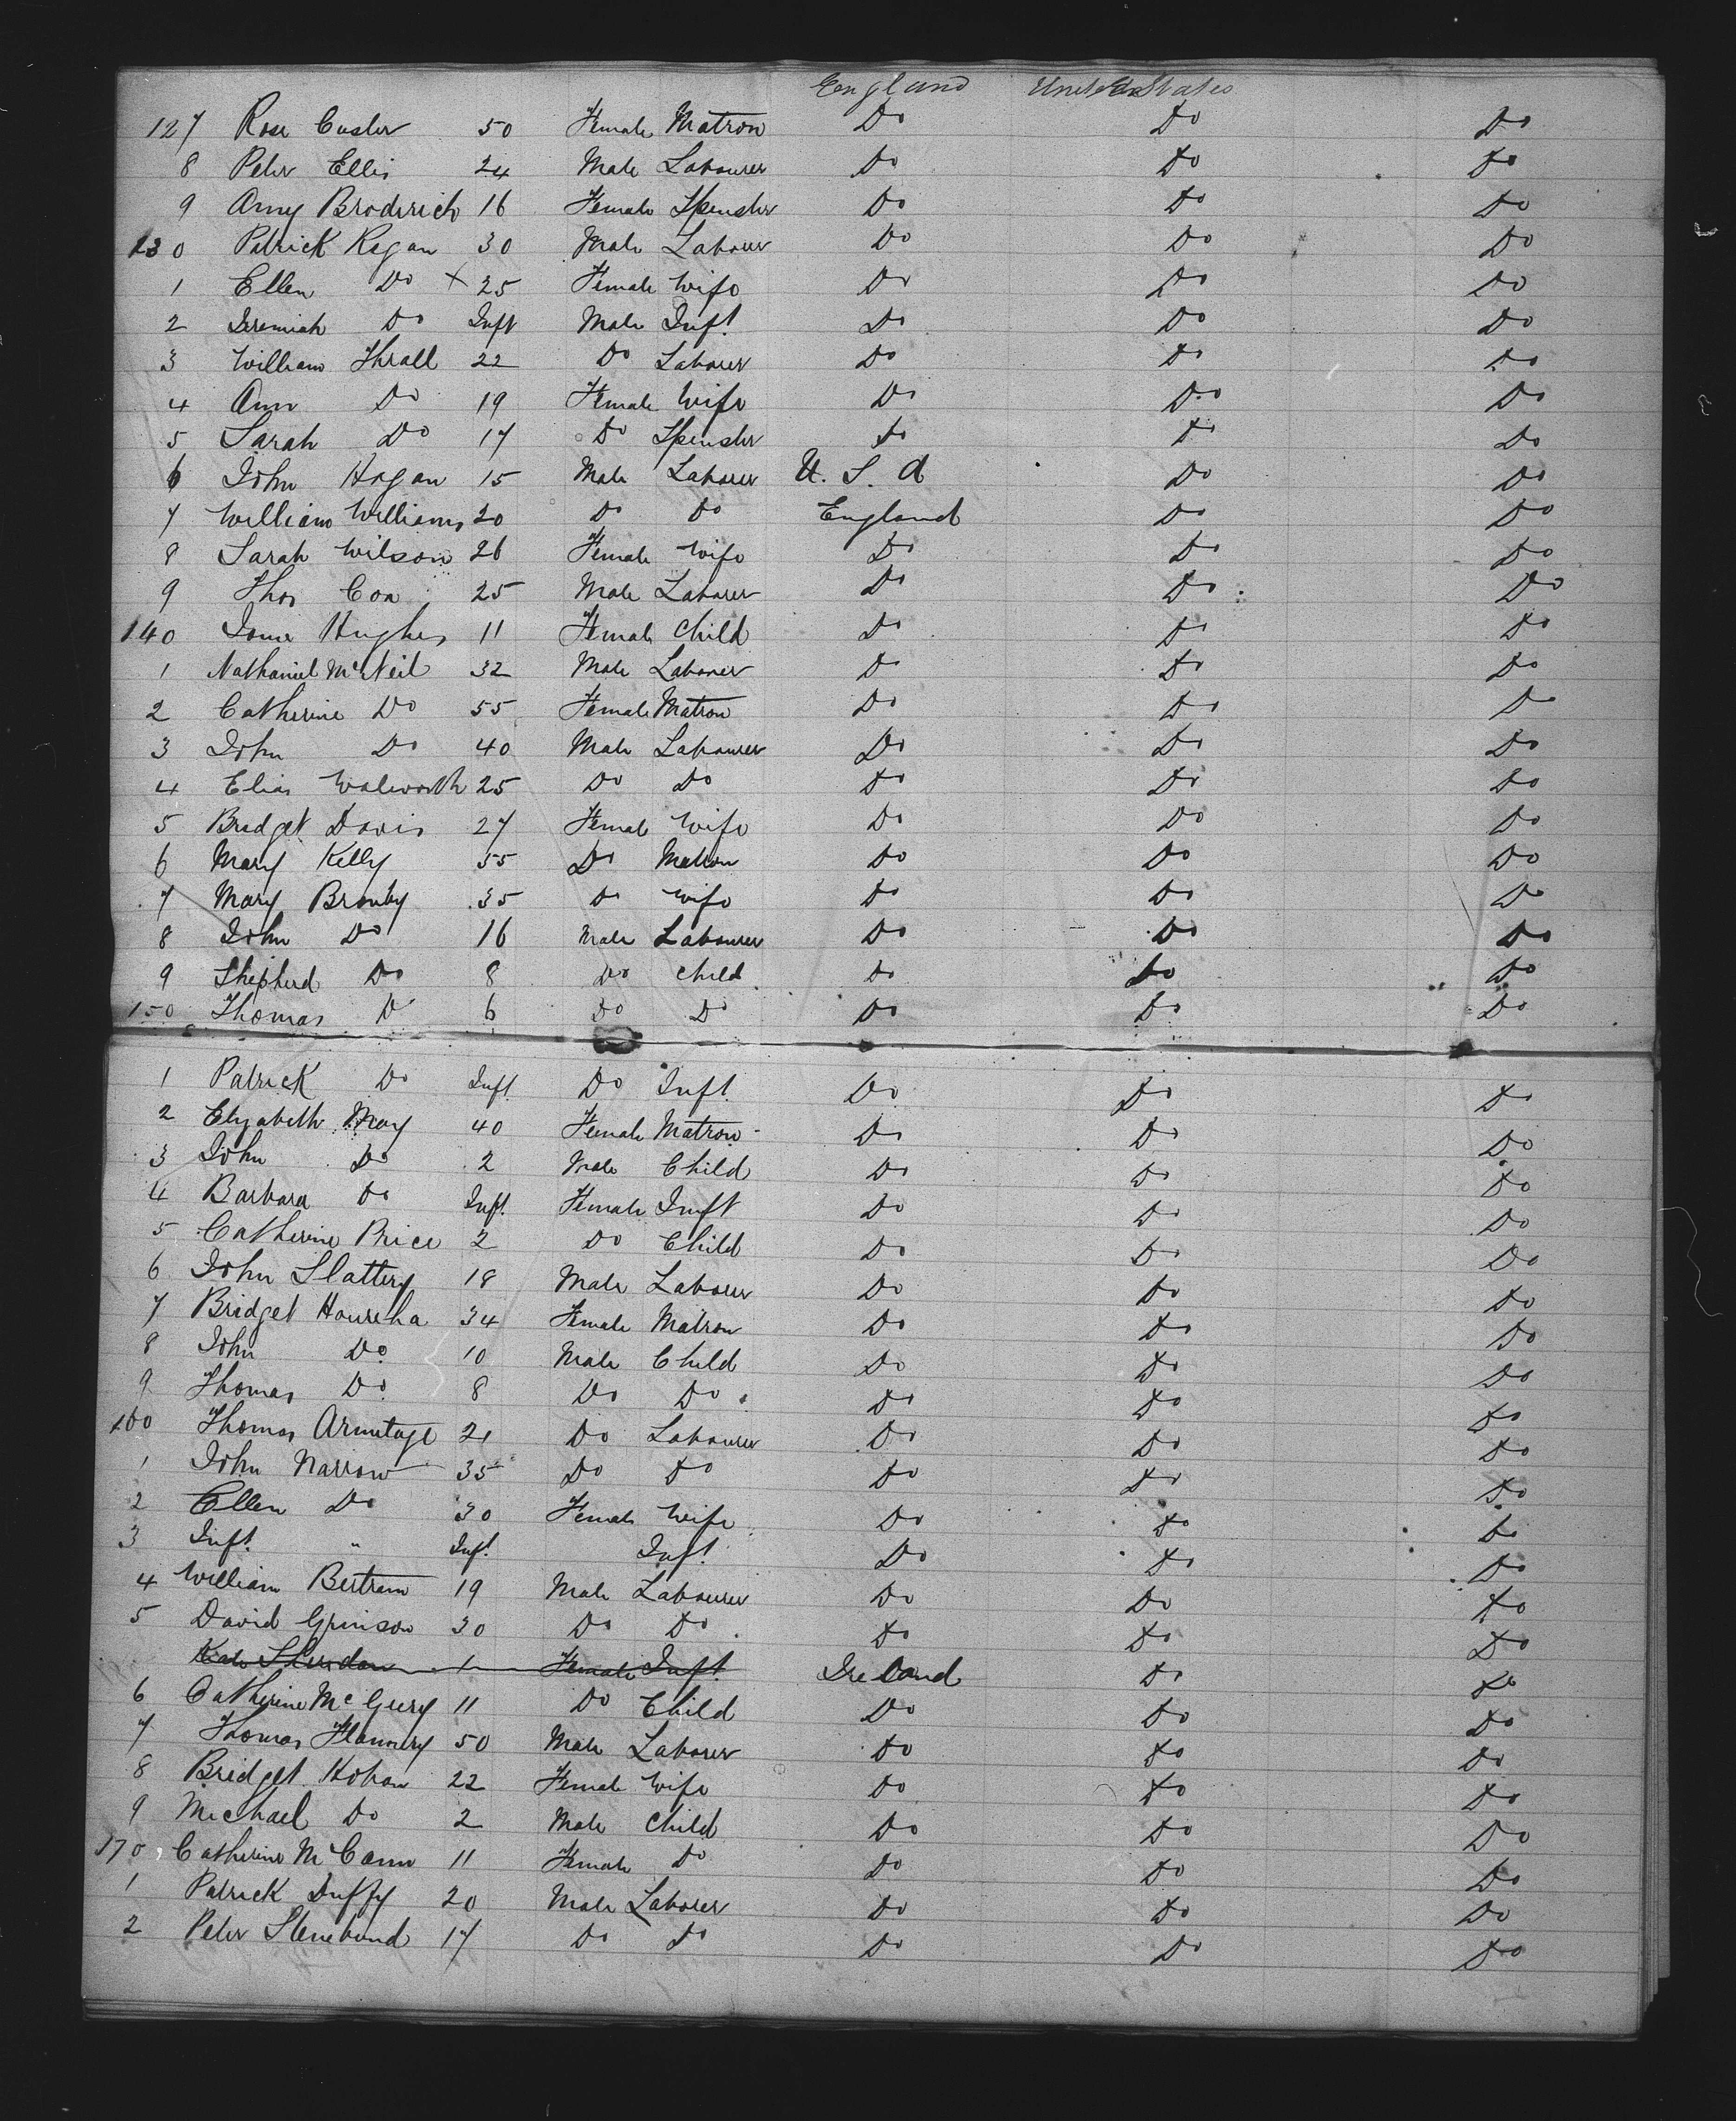 England United States
127 Rose Custer 50 Female Matron Do Do Do
8 Peter Ellis 24 Male Labourer Do Do Do
9 Amy Broderick 16 Female Spenster Do Do Do
130 Patrick Regan 30 Male Labourer Do Do Do
1 Ellen Do x 25 Female Wife Do Do Do
2 Jeremiah Do Inft Male Inft. Do Do Do
3 William Thrall 22 Do Laborer Do Do Do
4 Ann Do 19 Female Wife Do Do Do
5 Sarah Do 17 Do Spenster Do Do Do
6 John Hogan 15 Male Laborer U. S. A Do Do
7 William Williams 20 Do Do England Do Do
8 Sarah Wilson 26 Female Wife Do Do Do
9 Thos Cox 25 Male Laborer Do Do Do
140 Hughes 11 Female Child Do Do Do
1 Nathaniel McNeil 32 Male Laborer Do Do Do
2 Catherine Do 55 Female Matron Do Do Do
3 John Do 40 Male Labourer Do Do Do
4 Elias Walworth 25 Do Do Do Do Do
5 Bridget Davis 27 Female Wife Do Do Do
6 Mary Kelly 55 Do Matron Do Do Do
7 Mary Bromby 35 Do Wife Do Do Do
8 John Do 16 Male Labourer Do Do Do
9 Shepherd Do 8 Do Child Do Do Do
150 Thomas Do 6 Do Do Do Do Do
1 Patrick Do Inft. Do Inft. Do Do Do
2 Elizabeth May 40 Female Matron Do Do Do
3 John Do 2 Male Child Do Do Do
4 Barbara Do Inft. Female Inft Do Do Do
5 Catherine Price 2 Do Child Do Do Do
6 John Slattery 18 Male Laborer Do Do Do
7 Bridget Houreha 34 Female Matron Do Do Do
8 John Do 10 Male Child Do Do Do
9 Thomas Do 8 Do Do Do Do Do
160 Thomas Armitage 21 Do Labourer Do Do Do
1 John Narrow 35 Do Do Do Do Do
2 Ellen Do 30 Female Wife Do Do Do
3 Inft. " Inft. Inft. Do Do Do
4 William Bertram 19 Male Labourer Do Do Do
5 David Grinson 30 Do Do Do Do Do
Kate Sheridan 1 Female Inft Ireland Do Do
6 Catherine McGuery 11 Do Child Do Do Do
7 Thomas Flannery 50 Male Laborer Do Do Do
8 Bridget Hohan 22 Female Wife Do Do Do
9 Michael Do 2 Male Child Do Do Do
170 Catherine McCann 11 Female Do Do Do Do
1 Patrick Duffy 20 Male Laborer Do Do Do
2 Peter 17 Do Do Do Do Do